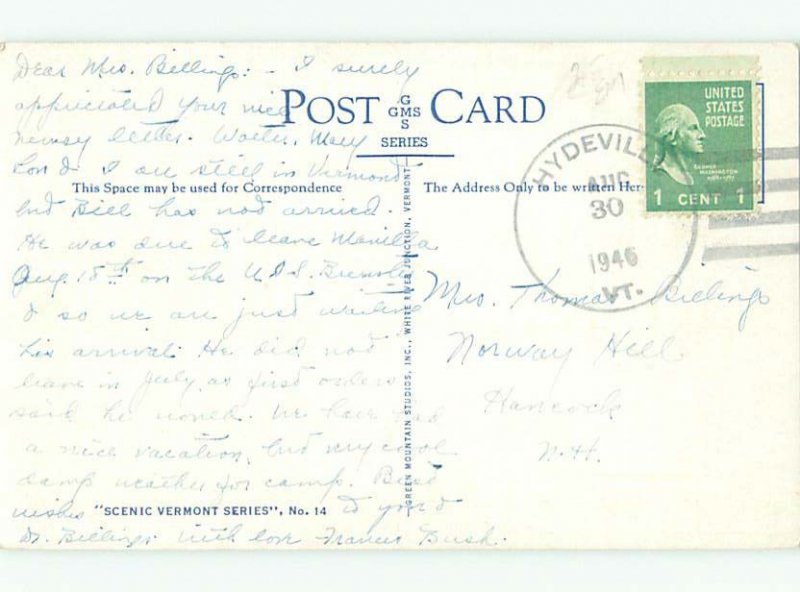 Dear Mrs. Billings: - I surely
appreciated your nice
newsy letter. Walter, Mary
Lou & I are still in Vermont
but Bill has not arrived.
He was due to leave Manilla
Aug. 18th on the U.S.S. Brewster
& so we are just waiting
his arrival. He did not
leave in July as first orders
said he would. We have had
a nice vacation, but very cool
damp weather for camp. Best
wishes to you &
Dr. Billings with love Frances Bush.
POST CARD
G
GMS
S
SERIES
This Space may be used for Correspondence
The Address Only to be written Her
GREEN MOUNTAIN STUDIOS, INC., WHITE RIVER JUNCTION, VERMONT
"SCENIC VERMONT SERIES", No. 14
HYDEVILL
AUG
30
1946
VT.
UNITED
STATES
POSTAGE
GEORGE
WASHINGTON
1 CENT 1
Mrs. Thomas Billings
Norway Hill
Hancock
N.H.